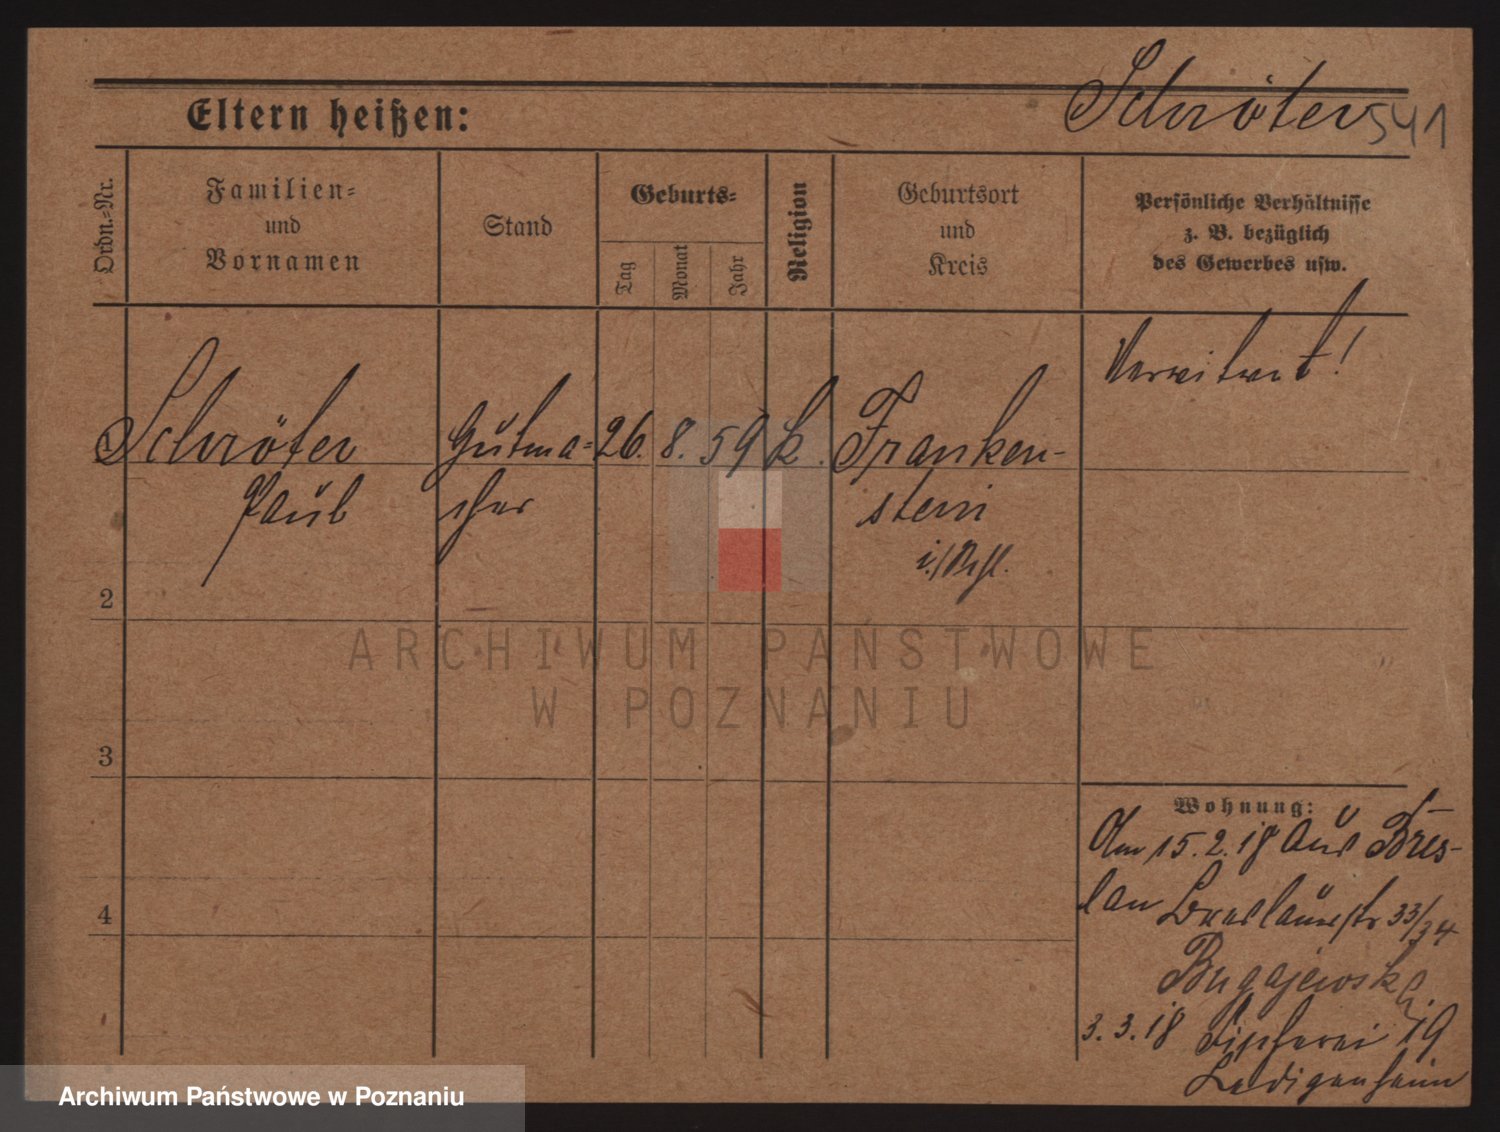 Schröter 541
Eltern heißen:
Ordn.=Nr.
Familien=
und
Vornamen
Stand
Geburts=
Tag
Monat
Jahr
Religion
Geburtsort
und
Kreis
Persönliche Verhältnisse
z. B. bezüglich
des Gewerbes usw.
Verwitwet!
Schröter Hutma= 26. 8. 59 k. Franken-
Paul cher stein
2
3
4
Wohnung:
Am 15.2.18 aus Bres-
lau Breslauerstr 33/34
Bugajewski
3.3.18 19
Ledigenheim
ARCHIWUM PAŃSTWOWE
W POZNANIU
Archiwum Państwowe w Poznaniu